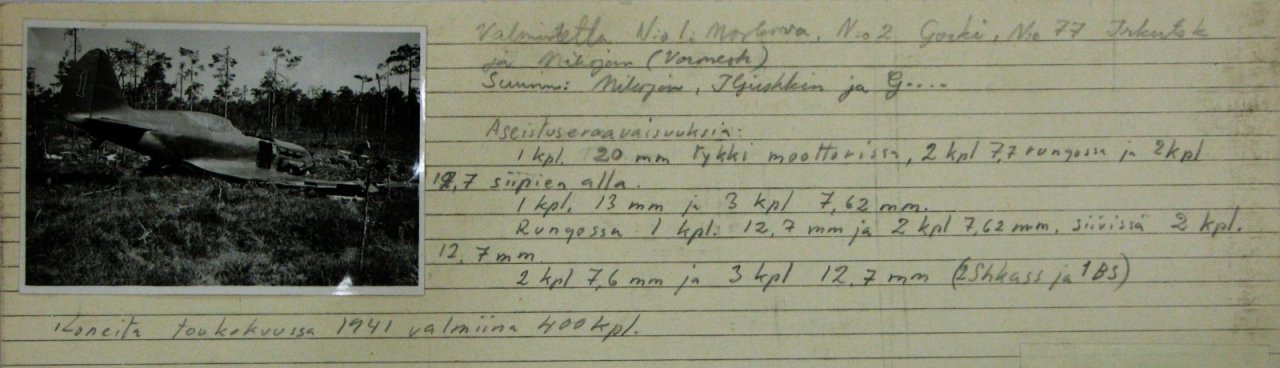 Valmistettu N:o 1: Moskova, N:o 2 Gorki, N:o 77 Irkutsk
ja Mikojan (Voronesh)
Suunn: Mikojan, Iljushkin ja G....
Aseistuseroavaisuuksia:
1 kpl. 20 mm tykki moottorissa, 2 kpl 7,7 rungossa ja 2 kpl
12,7 siipien alla.
1 kpl. 13 mm ja 3 kpl 7,62 mm.
Rungossa 1 kpl. 12,7 mm ja 2 kpl 7,62 mm, siivissä 2 kpl.
12,7 mm
2 kpl 7,6 mm ja 3 kpl 12,7 mm (2 Shkass ja 1 BS)
Koneita toukokuussa 1941 valmiina 400 kpl.
1